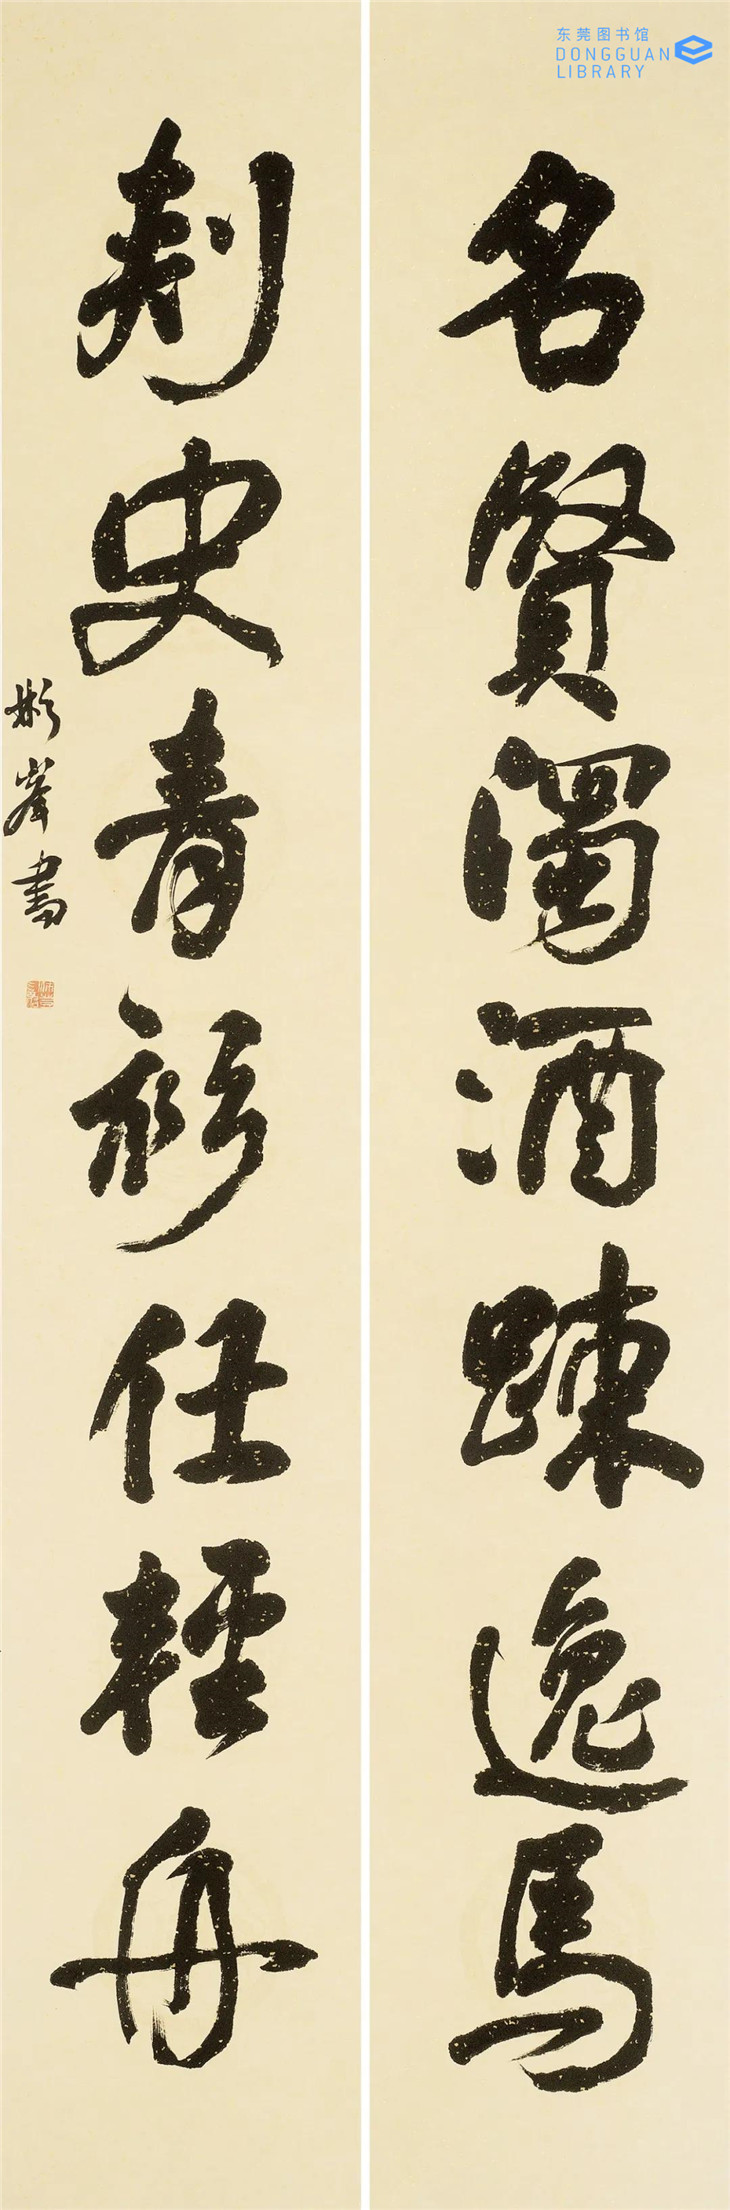 东莞图书馆
DONGGUAN
LIBRARY
名賢濁酒踈逸馬
刺史青衫任輕舟
彬峯書